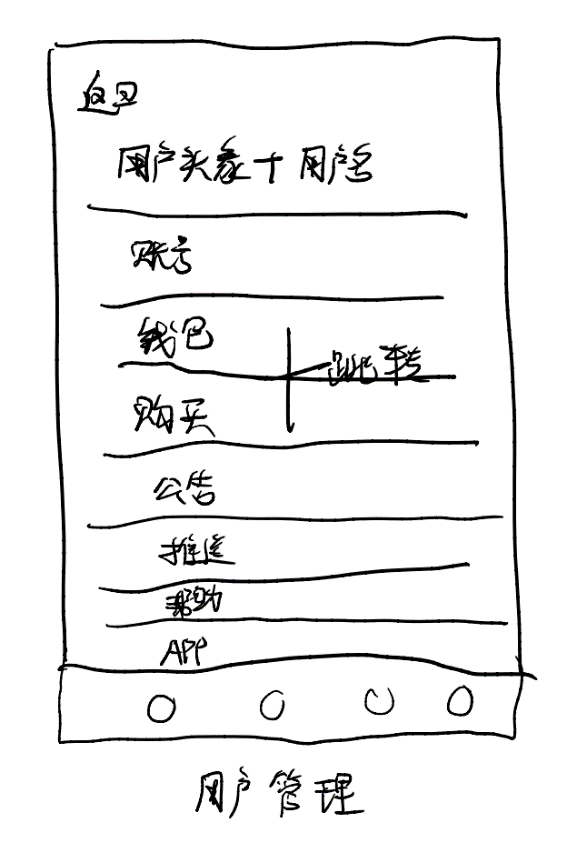 返回
用户头像+用户名
账号
钱包
跳转
购买
公告
推送
帮助
APP
用户管理